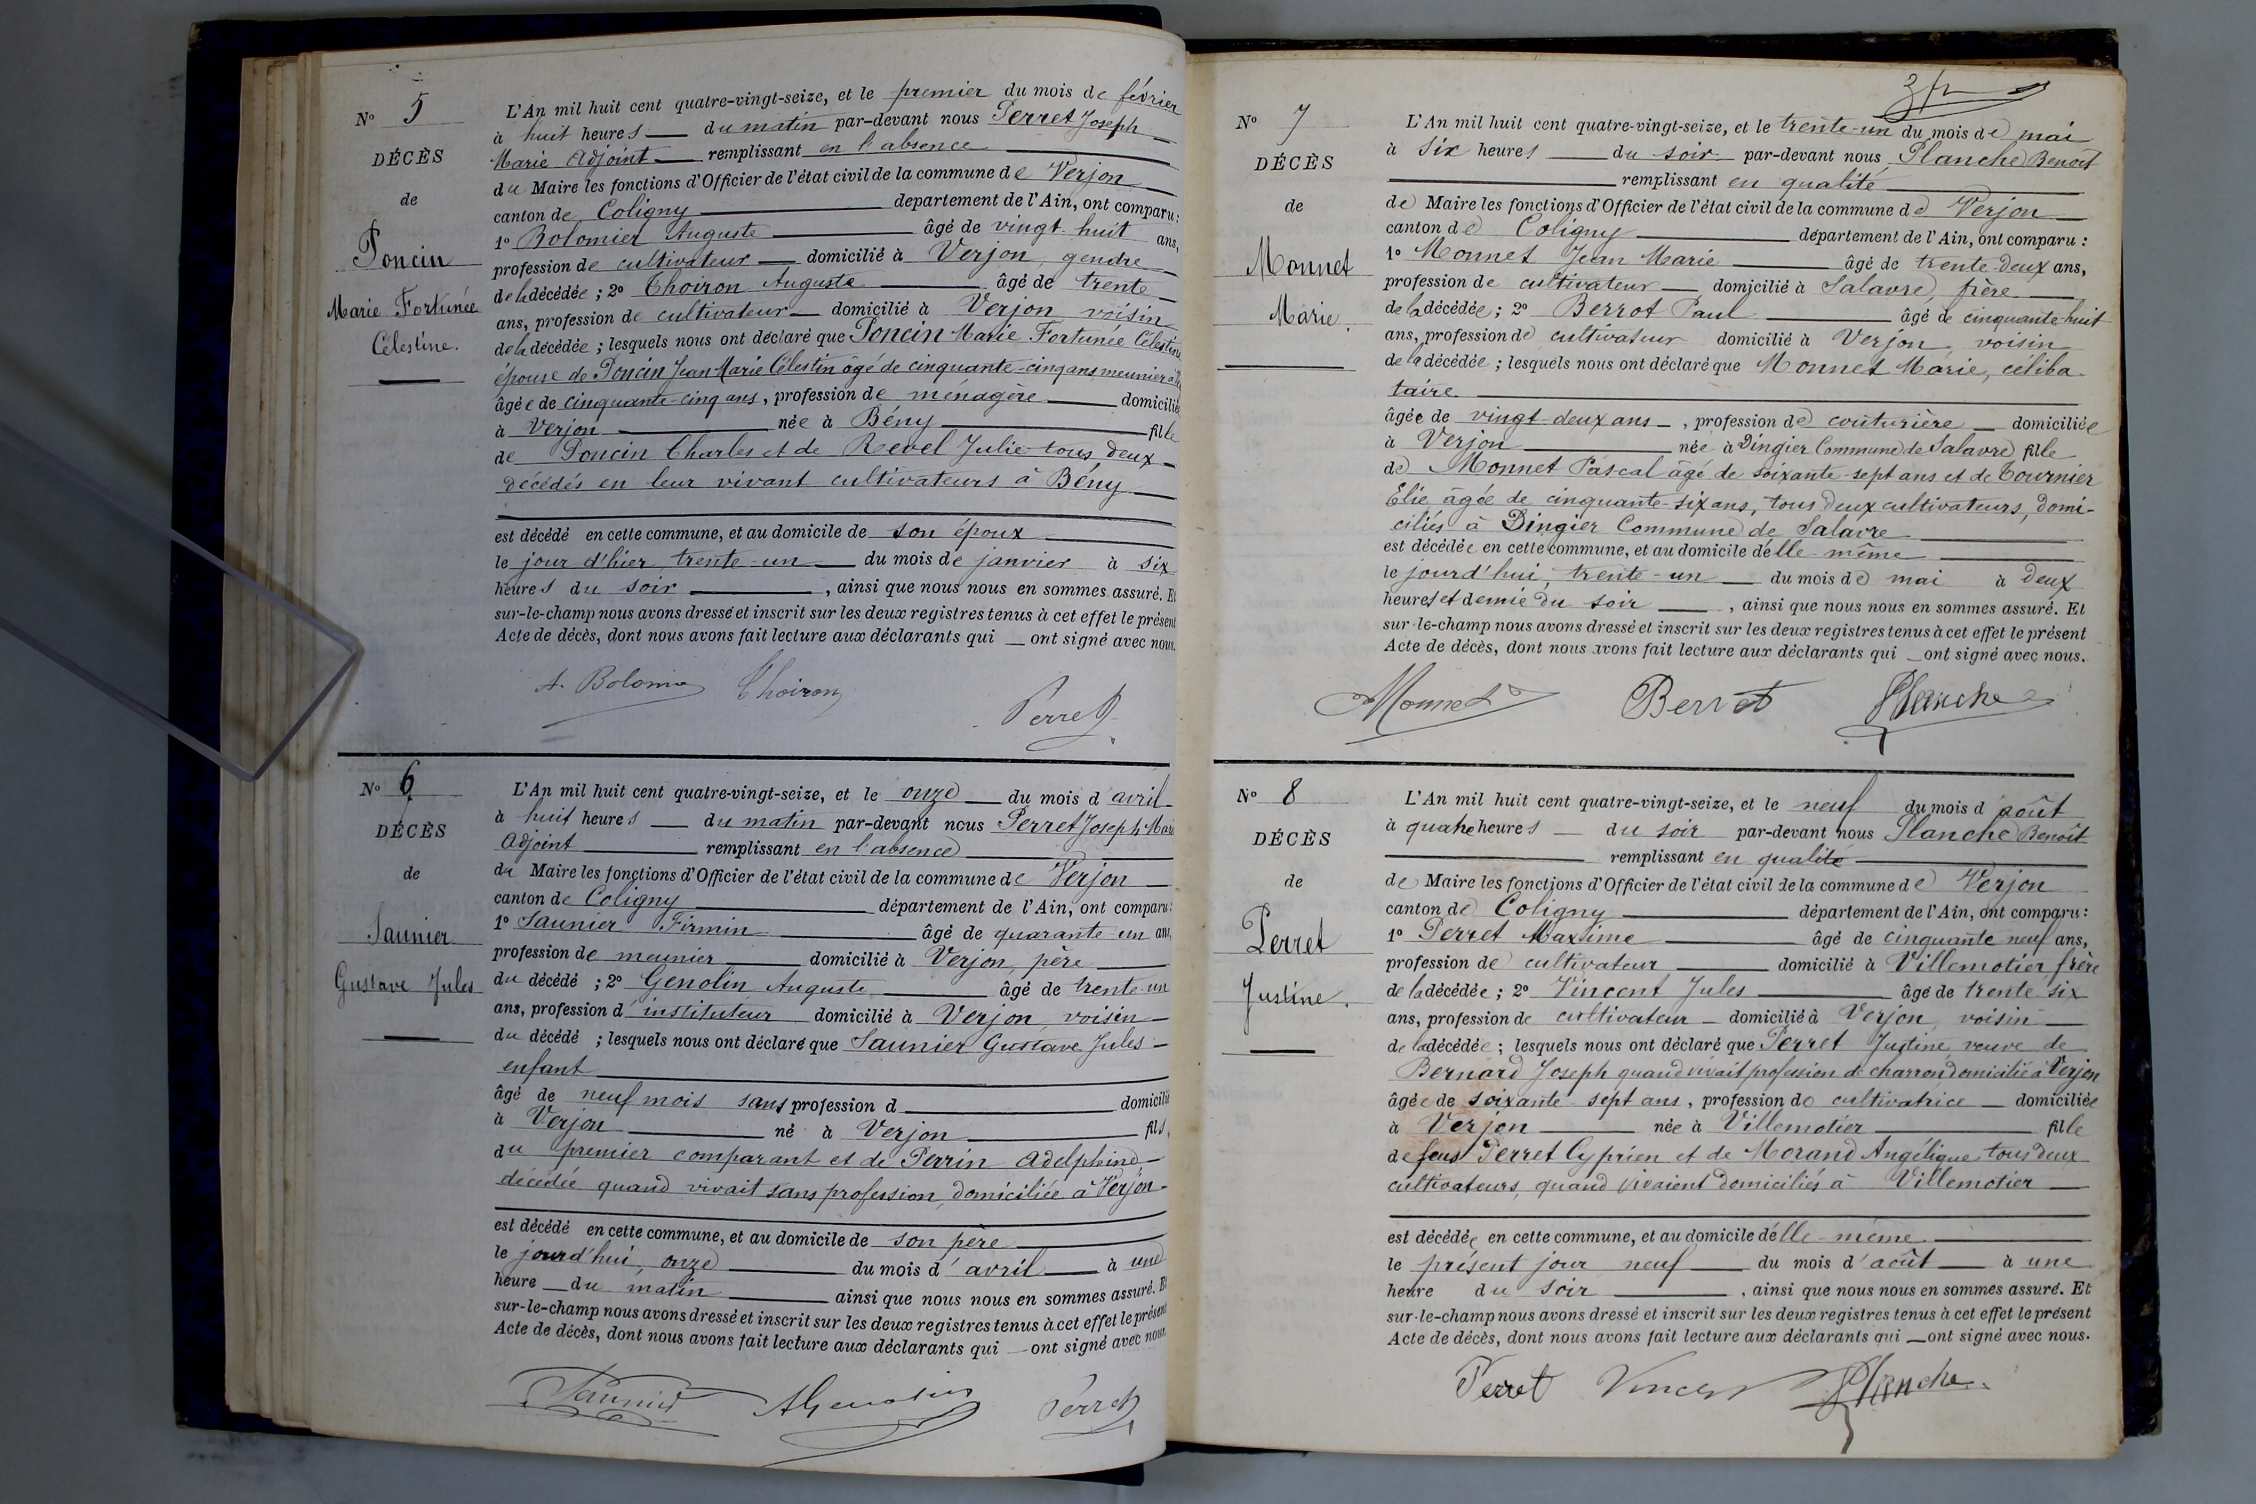 N° 5
DÉCÈS
de
Poncin
Marie Fortunée
Célestine.
L'An mil huit cent quatre-vingt-seize, et le premier du mois de février
à huit heures du matin par-devant nous Perret Joseph
Marie Adjoint remplissant en l'absence
du Maire les fonctions d'Officier de l'état civil de la commune de Verjon
canton de Coligny departement de l'Ain, ont comparu :
1° Bolomier Auguste âgé de vingt-huit ans,
profession de cultivateur domicilié à Verjon, gendre
de la décédée ; 2° Choiron Auguste âgé de trente
ans, profession de cultivateur domicilié à Verjon voisin
de la décédée ; lesquels nous ont déclaré que Poncin Marie Fortunée Célestine
épouse de Poncin Jean Marie Célestin âgé de cinquante-cinq ans meunier à
âgée de cinquante-cinq ans, profession de ménagère domiciliée
à Verjon née à Bény fille
de Poncin Charles et de Revel Julie tous deux
décédés en leur vivant cultivateurs à Bény
est décédé en cette commune, et au domicile de son époux
le jour d'hier trente-un du mois de janvier à six
heures du soir, ainsi que nous nous en sommes assuré. Et
sur-le-champ nous avons dressé et inscrit sur les deux registres tenus à cet effet le présent
Acte de décès, dont nous avons fait lecture aux déclarants qui ont signé avec nous.
A. Bolomier Choiron Perret
N° 6
DÉCÈS
de
Saunier
Gustave Jules
L'An mil huit cent quatre-vingt-seize, et le onze du mois d avril
à huit heures du matin par-devant nous Perret Joseph Marie
Adjoint remplissant en l'absence
du Maire les fonctions d'Officier de l'état civil de la commune de Verjon
canton de Coligny département de l'Ain, ont comparu :
1° Saunier Firmin âgé de quarante-un ans,
profession de meunier domicilié à Verjon, père
du décédé ; 2° Genolin Auguste âgé de trente-un
ans, profession d'instituteur domicilié à Verjon, voisin
du décédé ; lesquels nous ont déclaré que Saunier Gustave Jules
enfant
âgé de neuf mois sans profession d domicilié
à Verjon né à Verjon fils,
du premier comparant et de Perrin Adelphine
décédée quand vivait sans profession, domiciliée à Verjon
est décédé en cette commune, et au domicile de son père
le jourd'hui, onze du mois d'avril à une
heure du matin ainsi que nous nous en sommes assuré. Et
sur-le-champ nous avons dressé et inscrit sur les deux registres tenus à cet effet le présent
Acte de décès, dont nous avons fait lecture aux déclarants qui ont signé avec nous.
Saunier AGenolin Perret
N° 7
DÉCÈS
de
Monnet
Marie.
L'An mil huit cent quatre-vingt-seize, et le trente-un du mois de mai
à six heures du soir par-devant nous Planche Benoît
remplissant en qualité
de Maire les fonctions d'Officier de l'état civil de la commune de Verjon
canton de Coligny département de l'Ain, ont comparu :
1° Monnet Jean Marie âgé de trente-deux ans,
profession de cultivateur domicilié à Salavre, frère
de la décédée ; 2° Berrot Paul âgé de cinquante-huit
ans, profession de cultivateur domicilié à Verjon, voisin
de la décédée ; lesquels nous ont déclaré que Monnet Marie, céliba-
taire.
âgée de vingt-deux ans, profession de couturière domiciliée
à Verjon née à Dingier Commune de Salavre fille
de Monnet Pascal âgé de soixante-sept ans et de Tournier
Elie âgée de cinquante-six ans, tous deux cultivateurs, domi-
ciliés à Dingier Commune de Salavre
est décédée en cette commune, et au domicile d'elle-même
le jourd'hui, trente-un du mois de mai à deux
heures et demie du soir, ainsi que nous nous en sommes assuré. Et
sur-le-champ nous avons dressé et inscrit sur les deux registres tenus à cet effet le présent
Acte de décès, dont nous avons fait lecture aux déclarants qui ont signé avec nous.
Monnet Berrot Planche
N° 8
DÉCÈS
de
Perret
Justine.
L'An mil huit cent quatre-vingt-seize, et le neuf du mois d août
à quatre heures du soir par-devant nous Planche Benoît
remplissant en qualité
de Maire les fonctions d'Officier de l'état civil de la commune de Verjon
canton de Coligny département de l'Ain, ont comparu :
1° Perret Maxime âgé de cinquante neuf ans,
profession de cultivateur domicilié à Villemotier frère
de la décédée ; 2° Vincent Jules âgé de trente-six
ans, profession de cultivateur domicilié à Verjon, voisin
de la décédée ; lesquels nous ont déclaré que Perret Justine, veuve de
Bernard Joseph quand vivait profession de charron, domicilié à Verjon
âgée de soixante-sept ans, profession de cultivatrice domiciliée
à Verjon née à Villemotier fille
de feus Perret Cyprien et de Morand Angélique tous deux
cultivateurs, quand vivaient domiciliés à Villemotier
est décédée en cette commune, et au domicile d'elle-même
le présent jour neuf du mois d'août à une
heure du soir, ainsi que nous nous en sommes assuré. Et
sur-le-champ nous avons dressé et inscrit sur les deux registres tenus à cet effet le présent
Acte de décès, dont nous avons fait lecture aux déclarants qui ont signé avec nous.
Perret Vincent Planche